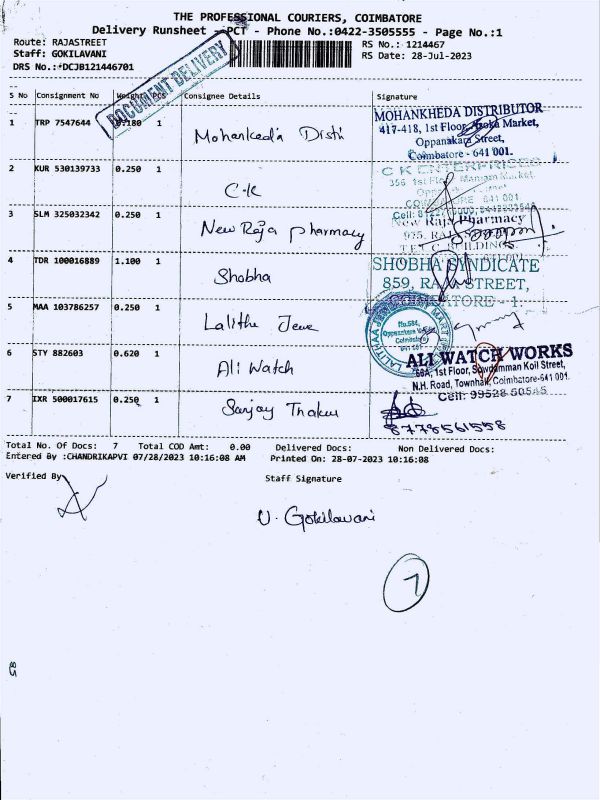 THE PROFESSIONAL COURIERS, COIMBATORE
Delivery Runsheet - PCT - Phone No.:0422-3505555 - Page No.:1
Route: RAJASTREET
RS No.: 1214467
Staff: GOKILAVANI
RS Date: 28-Jul-2023
DRS No.: DCJB121446701
DOCUMENT DELIVERY
S No Consignment No Weight PCS Consignee Details Signature
1 TRP 7547644 0.180 1 Mohankeda Disti
MOHANKHEDA DISTRIBUTOR
417-418, 1st Floor, Asoka Market,
Oppanakara Street,
Coimbatore - 641 001.
2 KUR 530139733 0.250 1 C.K
C K ENTERPRICES
356 1st Floor
3 SLM 325032342 0.250 1 New Raja pharmacy
New Raja Pharmacy
4 TDR 100016889 1.100 1 Shobha
SHOBHA SYNDICATE
859, RAJA STREET,
COIMBATORE - 1.
5 MAA 103786257 0.250 1 Lalithe Jewe
LALITHAA
No.584,
6 STY 882603 0.620 1 Ali Watch
ALI WATCH WORKS
68A, 1st Floor, Sowdamman Koil Street,
N.H. Road, Townhall, Coimbatore-641 001.
Cell: 99528 50545
7 IXR 500017615 0.250 1 Sanjay Thakur
8778561558
Total No. Of Docs: 7 Total COD Amt: 0.00 Delivered Docs: Non Delivered Docs:
Entered By :CHANDRIKAPVI 07/28/2023 10:16:08 AM Printed On: 28-07-2023 10:16:08
Verified By
Staff Signature
V. Gokilavani
7